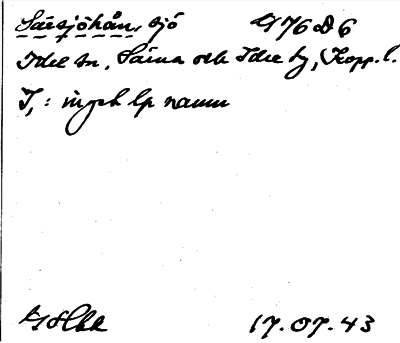 Särsjöhån, sjö G 76 D 6
Idre sn, Särna och Idre tg, Kopp. l.
I, : inget lp namn
17.07.43